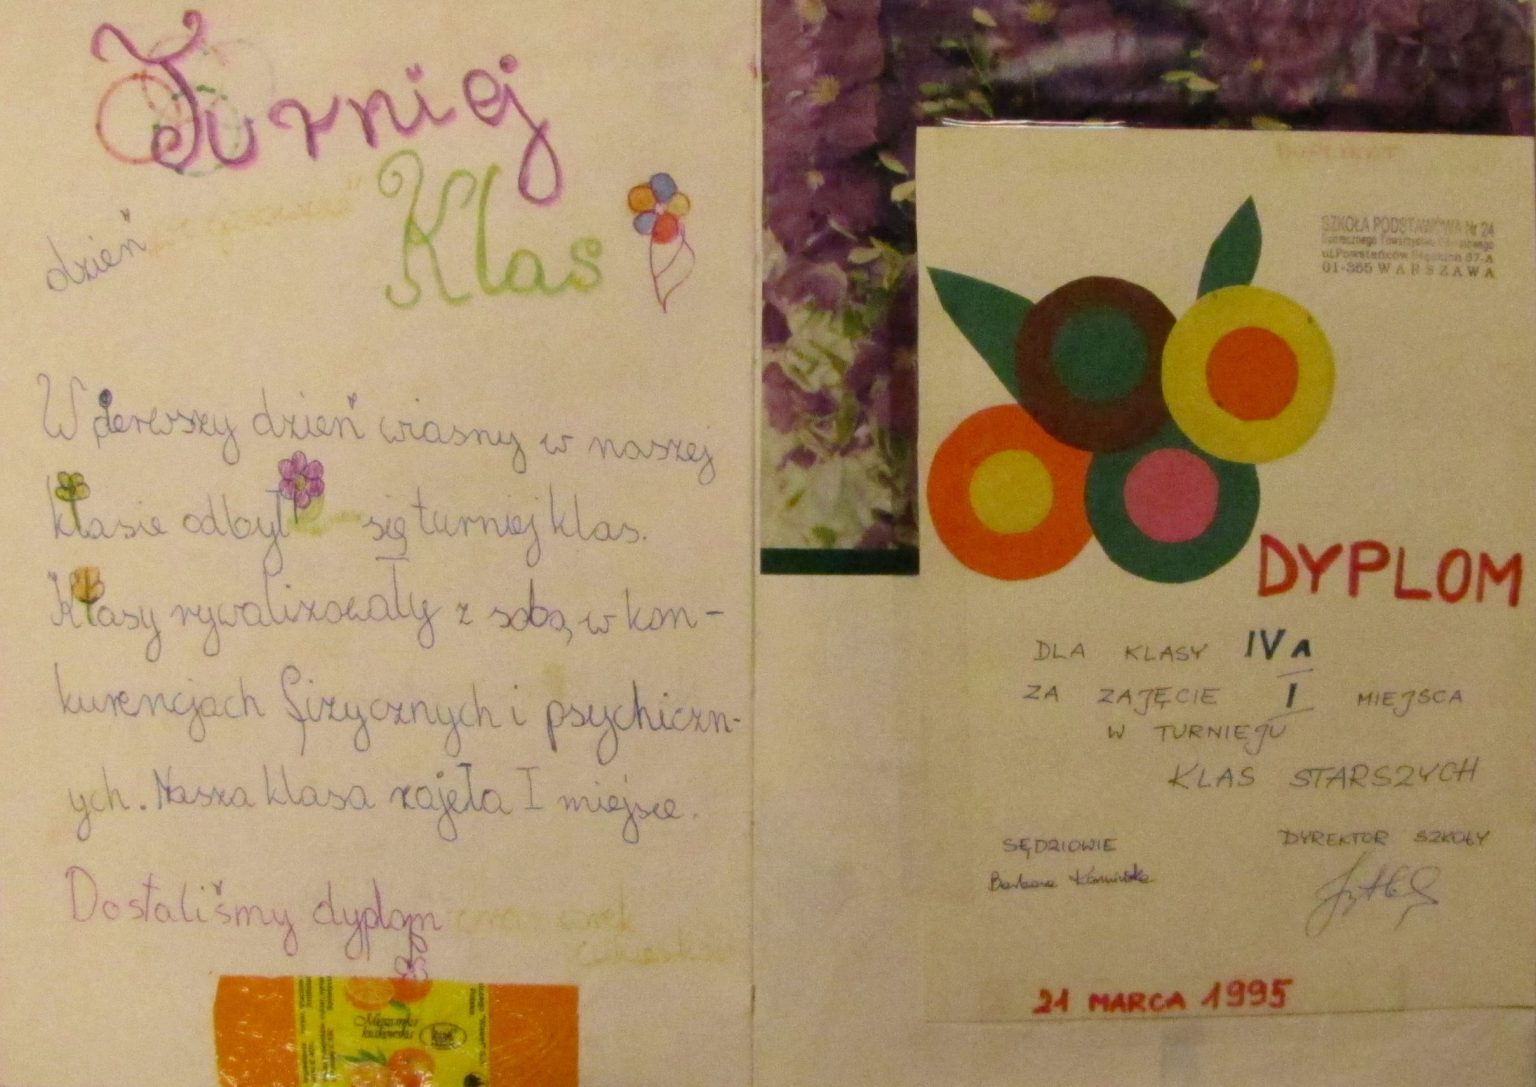 Turniej
Klas
dzień
W pierwszy dzień wiosny w naszej
klasie odbył się turniej klas.
Klasy rywalizowały z sobą w kon-
kurencjach fizycznych i psychiczn-
ych. Nasza klasa zajęła I miejsce.
Dostaliśmy dyplom
Mieszanka
krakowska
SZKOŁA PODSTAWOWA Nr 24
Społecznego Towarzystwa Oświatowego
ul. Powstańców Śląskich 67-A
01-355 WARSZAWA
DYPLOM
DLA KLASY IVA
ZA ZAJĘCIE I MIEJSCA
W TURNIEJU
KLAS STARSZYCH
SĘDZIOWIE
DYREKTOR SZKOŁY
Barbara
21 MARCA 1995